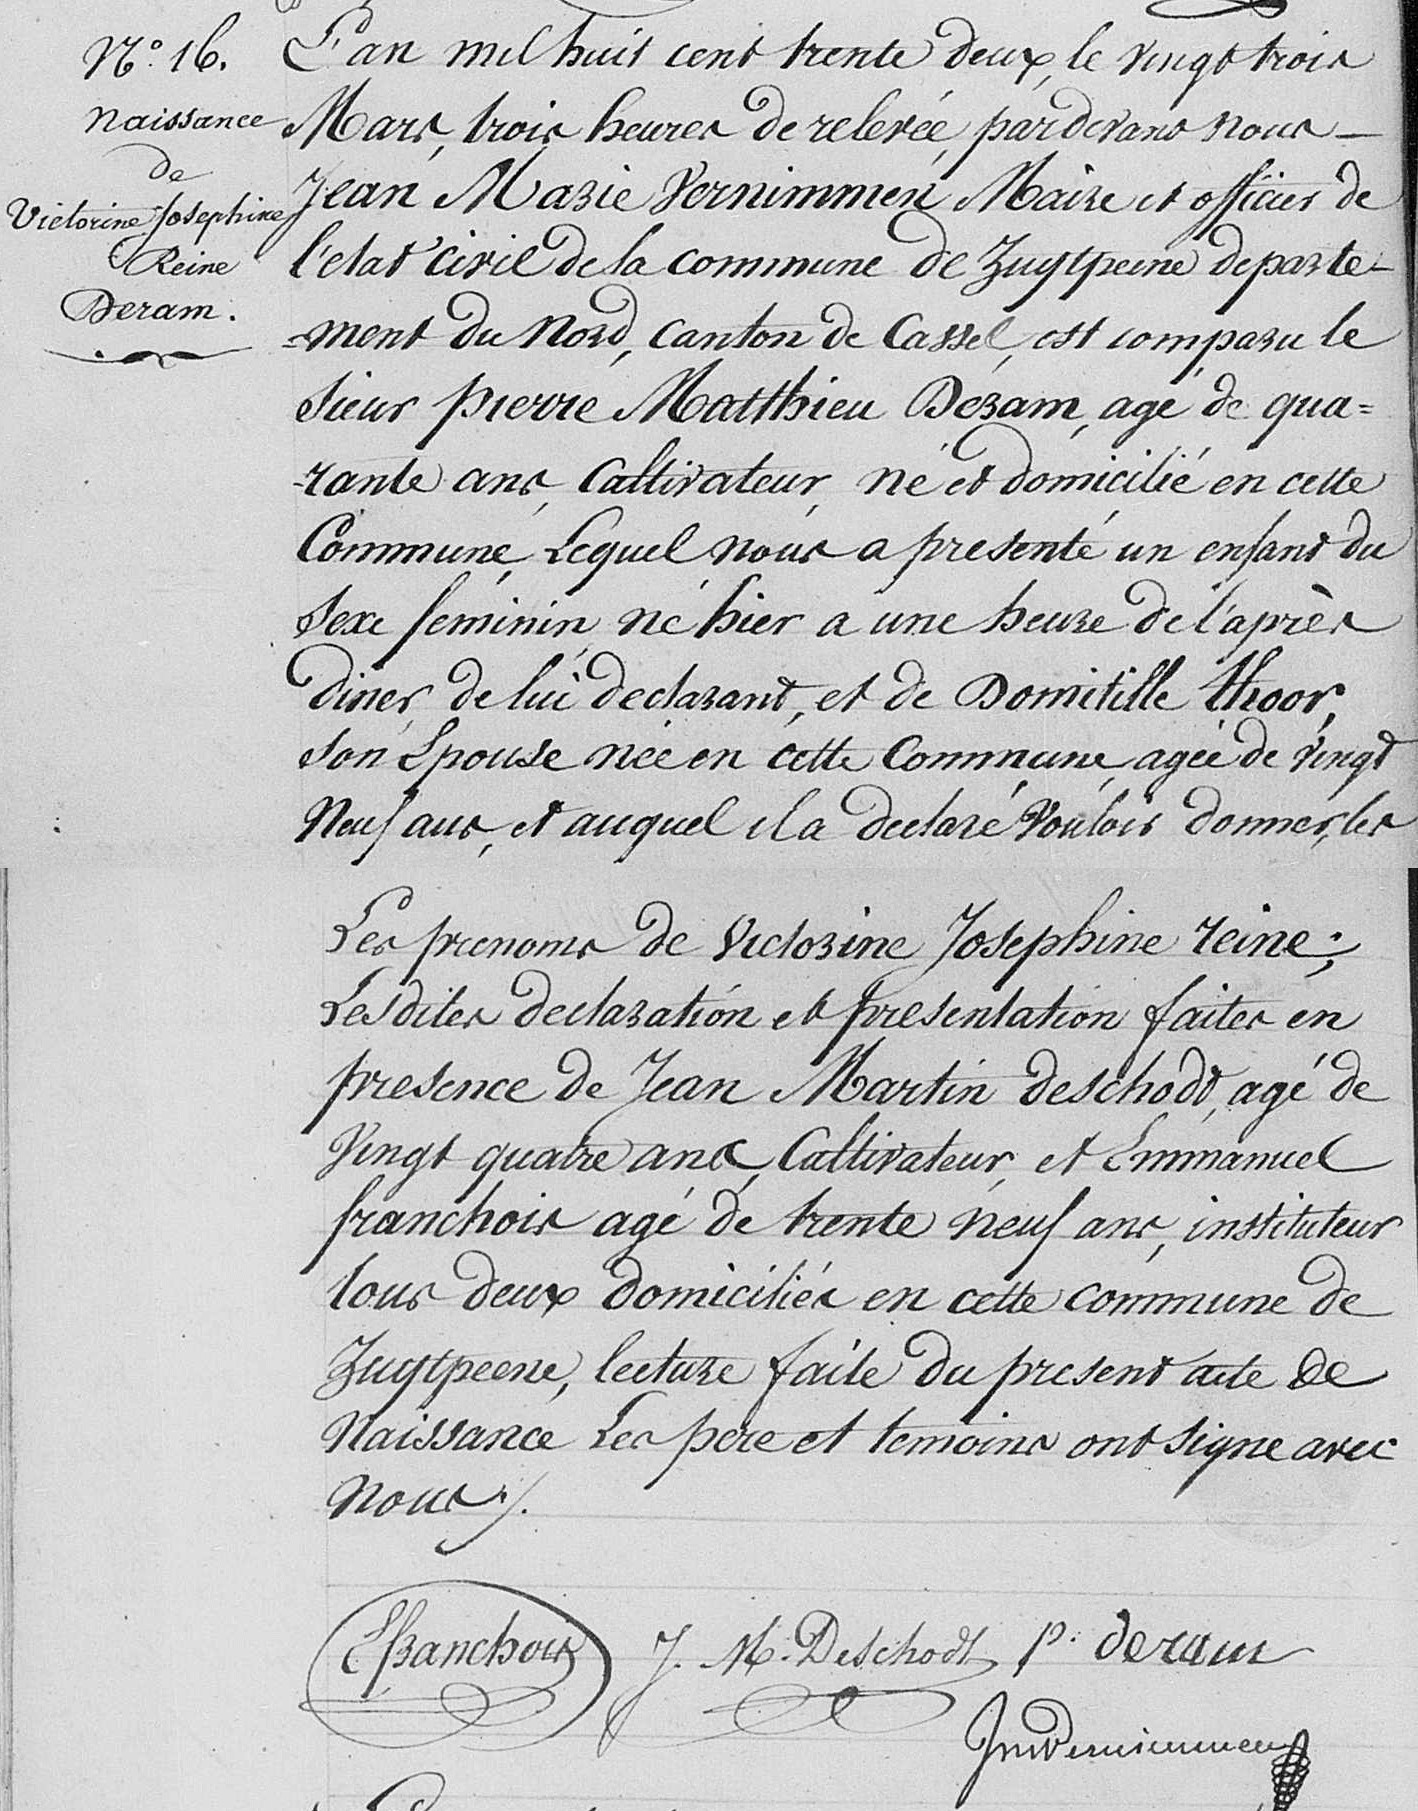 N.° 16.
Naissance
de
Victorine Josephine
Reine
Deram.
L'an mil huit cent trente deux, le vingt trois
Mars, trois heures de relevée, pardevant nous —
Jean Marie Vernimmen, Maire et officier de
l'etat civil de la commune de Zuytpeene departe-
-ment du Nord, canton de Cassel, est comparu le
sieur pierre Matthieu Déram, agé de qua=
-rante ans, Cultivateur, né et domicilié en cette
Commune, Lequel nous a presenté un enfant du
sexe feminin, né hier a une heure de l'après
diner, de lui declarant, et de Domitille thoor,
son Epouse née en cette Commune, agée de vingt
Neuf ans, et auquel il a declaré Vouloir donner, les
Les prenoms de Victorine Josephine reine;
Lesdites declaration et presentation faites en
presence de Jean Martin deschodt, agé de
Vingt quatre ans, Cultivateur, et Emmanuel
franchois agé de trente neuf ans, instituteur
tous deux domiciliés en cette commune de
Zuytpeene, lecture faite du present acte de
Naissance Les pere et temoins ont signe avec
Nous /.
E franchois J. M. Deschodt P. deram
Jm Vernimmen